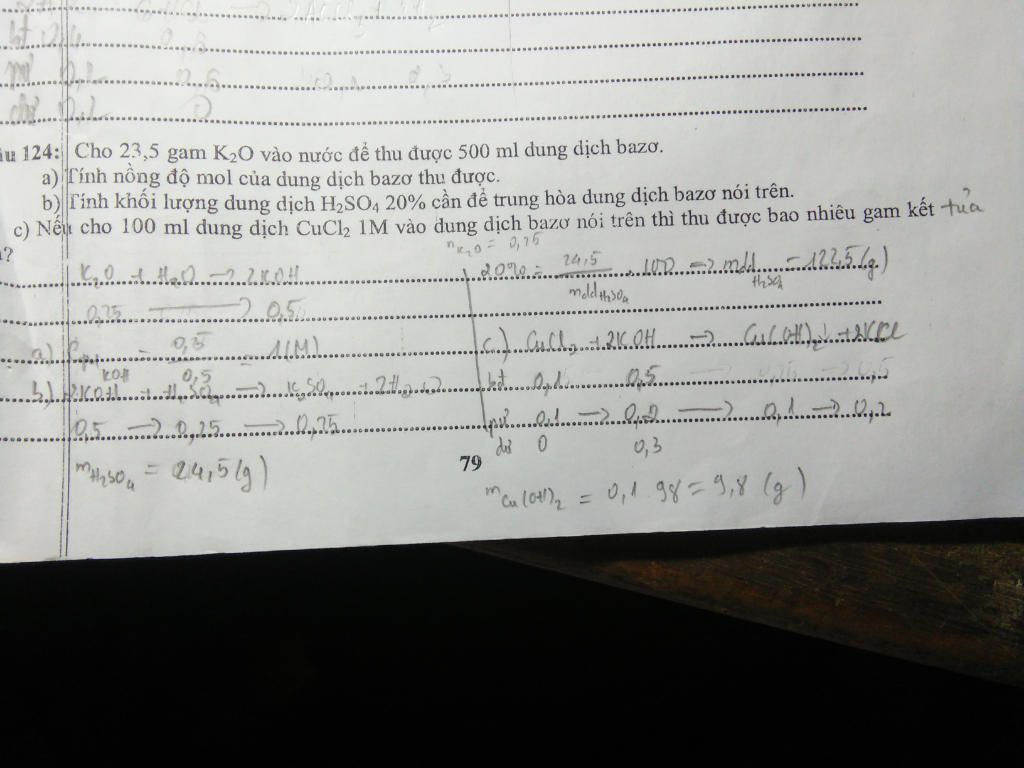 bt 0,4 0,6
0,6
0,2 0
âu 124: Cho 23,5 gam K₂O vào nước để thu được 500 ml dung dịch bazơ.
a) Tính nồng độ mol của dung dịch bazơ thu được.
b) Tính khối lượng dung dịch H₂SO₄ 20% cần để trung hòa dung dịch bazơ nói trên.
c) Nếu cho 100 ml dung dịch CuCl₂ 1M vào dung dịch bazơ nói trên thì thu được bao nhiêu gam kết tủa
?
n K₂O = 0,25
K₂O + H₂O → 2KOH
0,25 → 0,5
a) C KOH = 0,5 / 0,5 = 1(M)
b) 2KOH + H₂SO₄ → K₂SO₄ + 2H₂O
0,5 → 0,25 → 0,25
m H₂SO₄ = 24,5(g)
20% = 24,5 / mdd H₂SO₄ . 100 → mdd H₂SO₄ = 122,5(g)
c) CuCl₂ + 2KOH → Cu(OH)₂↓ + 2KCl
bđ 0,1 0,5
pư 0,1 → 0,2 → 0,1 → 0,2
dư 0 0,3
m Cu(OH)₂ = 0,1 . 98 = 9,8 (g)
79